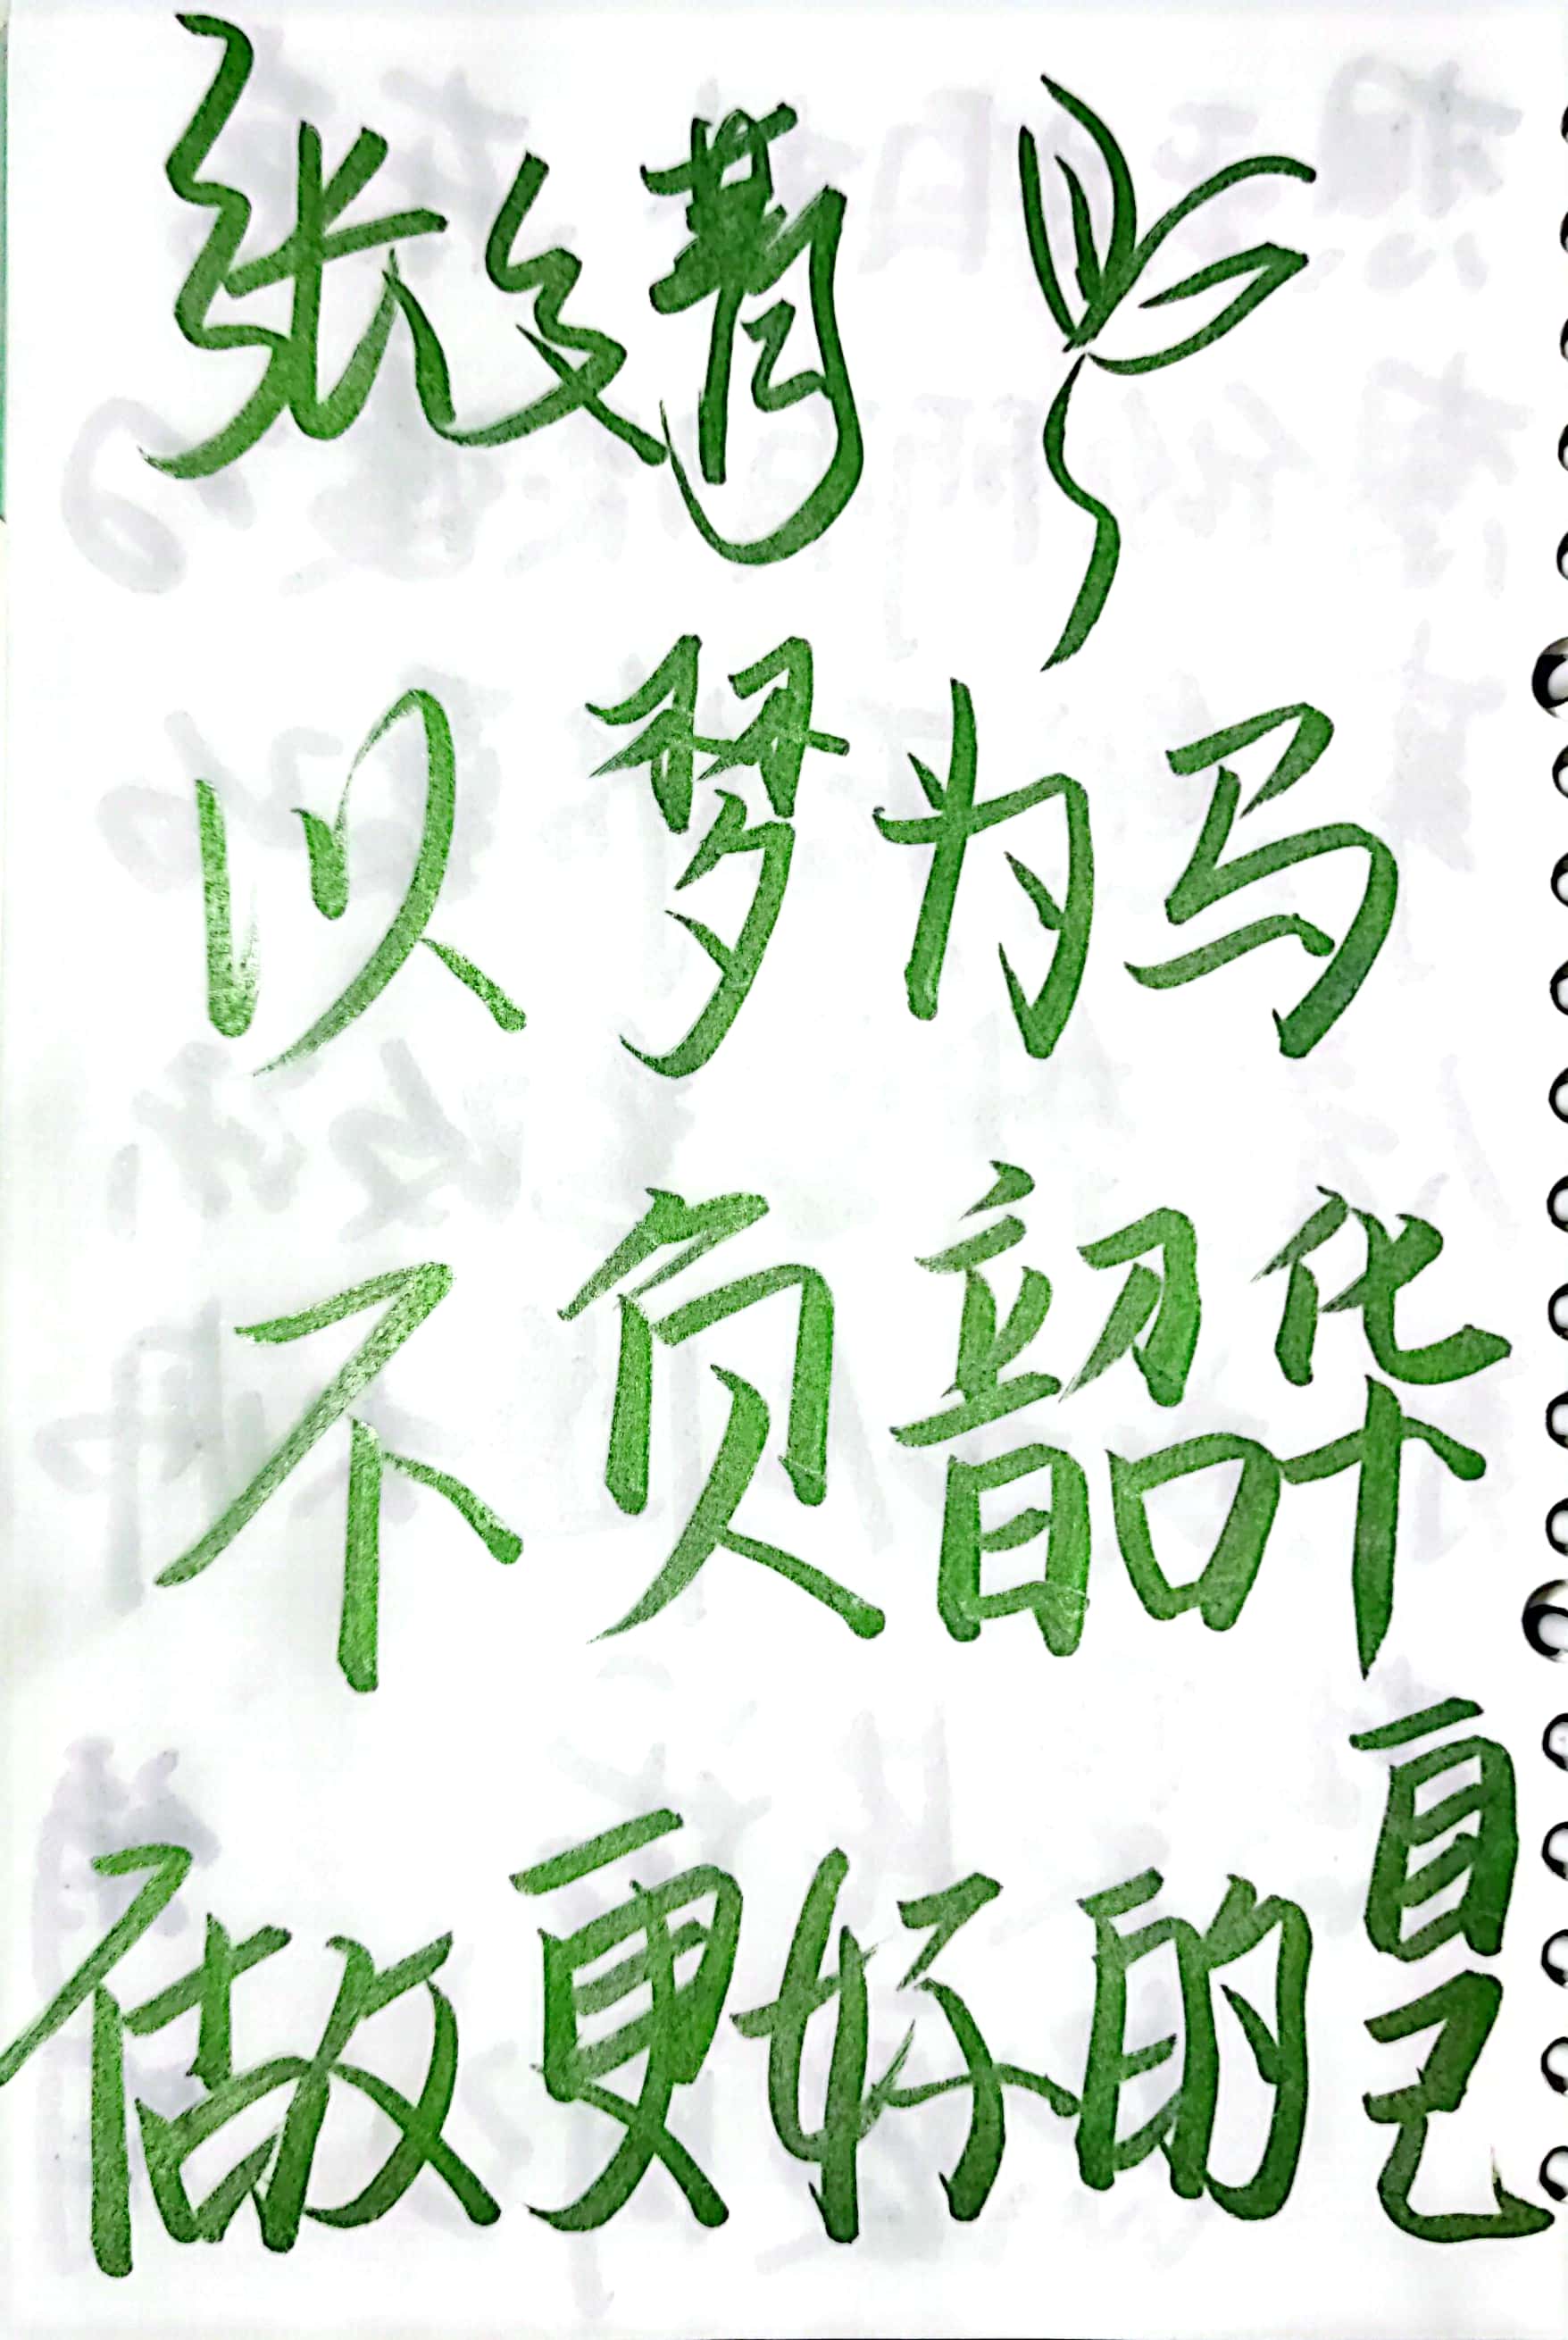 张菁
以梦为马
不负韶华
做更好的自己